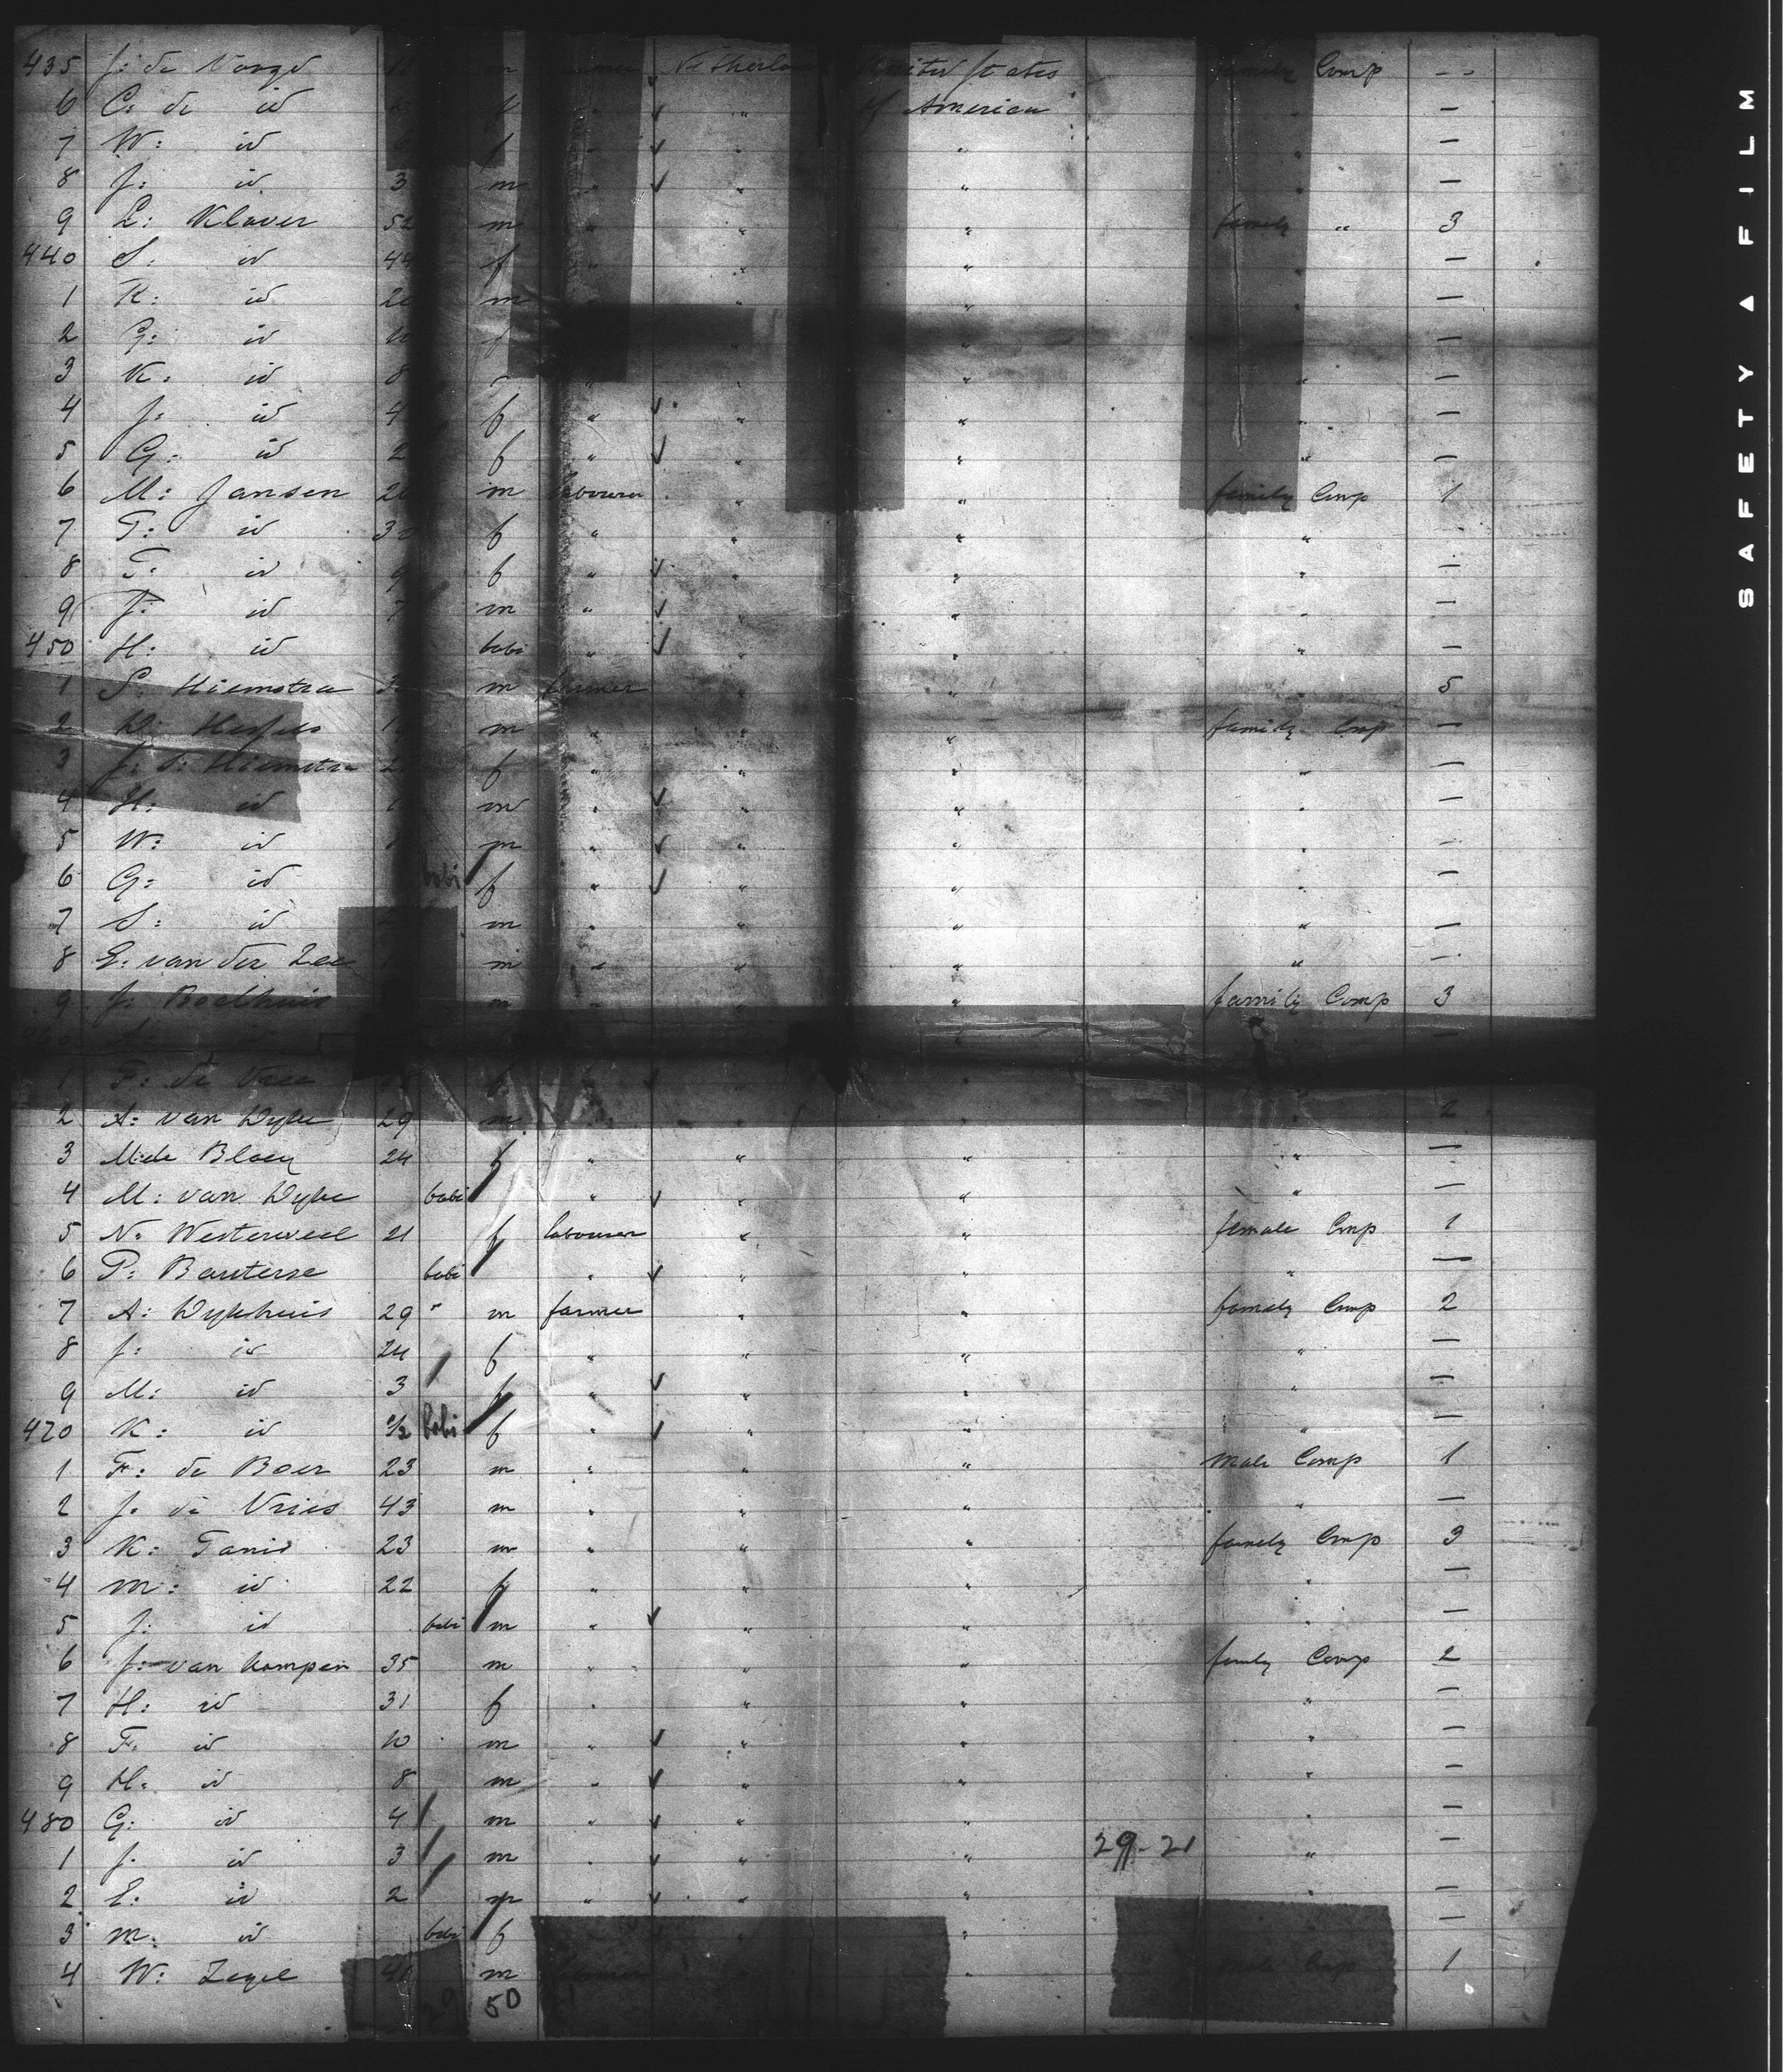 435 J: de 12 m Netherla United States family Comp - -
6 C: de id f " ✓ " of America " —
7 W: id 6 f " ✓ " " " —
8 J: id 3 m " ✓ " " " —
9 L: Klaver 52 m " " " family " 3
440 S: id 44 f " " " —
1 K: id m " " " —
2 G: id 10 f " " —
3 K: id 8 " " " —
4 J: id 4 f " ✓ " " " —
5 G: id 2 f " ✓ " " " —
6 M: Jansen m labourer " " family Comp 1
7 T: id 30 f " " " " —
8 T: id 9 f " ✓ " " " —
9 J: id 7 m " ✓ " " " —
450 H: id babi " ✓ " " " —
1 S: Hiemstra m farmer " " 5
2 m " " family Comp —
3 J: S: Hiemstra f " " " " —
4 H: id m " ✓ " " " —
5 W: id m " ✓ " " " —
6 G: id babi f " ✓ " " " —
7 S: id m " " " " —
8 E: van der Zee m " " " " —
9 J: Boelhuis m " " family Comp 3
—
1 F: de Vree f " ✓ " " "
2 A: van Dyke 29 m " " " " 2
3 M: de Blaey 24 f " " " " —
4 M: van Dyke babi " ✓ " " " —
5 N: Westerweel 21 f labourer " " female Comp 1
6 P: Bauterse babi " ✓ " " " —
7 A: Dykhuis 29 " m farmer " " family Comp 2
8 J: id 24 f " " " " —
9 M: id 3 f " ✓ " " " —
470 K: id babi f " ✓ " " " —
1 F: de Boer 23 m " " " male Comp 1
2 J: de Vries 43 m " " " " —
3 K: Tanis 23 m " " " family Comp 3
4 m: id 22 f " " " " —
5 J: id babi m " ✓ " " " —
6 J: van Kampen 35 m " " " family Comp 2
7 H: id 31 f " " " " —
8 F: id 10 m " ✓ " " " —
9 H: id 8 m " ✓ " " " —
480 G: id 4 m " ✓ " " " —
1 J: id 3 m " ✓ " " 29-21 " —
2 E: id 2 m " ✓ " " " —
3 m: id babi f " —
4 W: Zegel 40 m " male Comp 1
29 50
SAFETY ▲ FILM